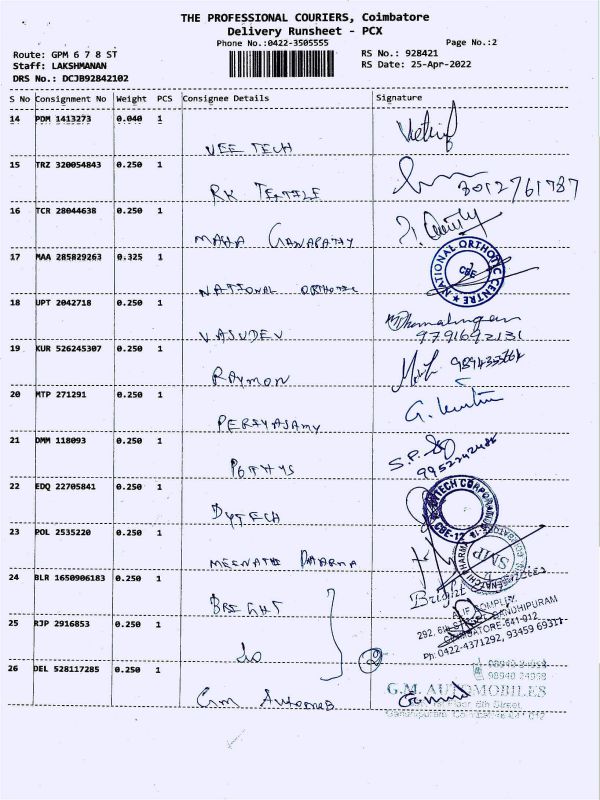 THE PROFESSIONAL COURIERS, Coimbatore
Delivery Runsheet - PCX
Phone No.:0422-3505555
Page No.:2
Route: GPM 6 7 8 ST
RS No.: 928421
Staff: LAKSHMANAN
RS Date: 25-Apr-2022
DRS No.: DCJB92842102
S No Consignment No Weight PCS Consignee Details Signature
14 PDM 1413273 0.040 1
VEE TECH
15 TRZ 320054843 0.250 1
RK TEXTILE
16 TCR 28044638 0.250 1
MAHA GANAPATHY
17 MAA 285829263 0.325 1
NATIONAL ORTHOTIC
NATIONAL ORTHOTIC CENTRE
CBE
18 UPT 2042718 0.250 1
VASUDEV
9791692131
19 KUR 526245307 0.250 1
RAYMON
20 MTP 271291 0.250 1
PERIYASAMY
21 DMM 118093 0.250 1
POTHYS
S.P.
9952242486
22 EDQ 22705841 0.250 1
DYTECH
DYTECH CORPORATION
CBE-12
23 POL 2535220 0.250 1
MEENATHI PHARMA
24 BLR 1650906183 0.250 1
BREGHT
25 RJP 2916853 0.250 1
do
2
COMPLEX
GANDHIPURAM
COIMBATORE-641 012
Ph: 0422-4371292, 93459 69311
26 DEL 528117285 0.250 1
GM Automob
98940 24958
G.M. AUTOMOBILES
Floor, 6th Street,